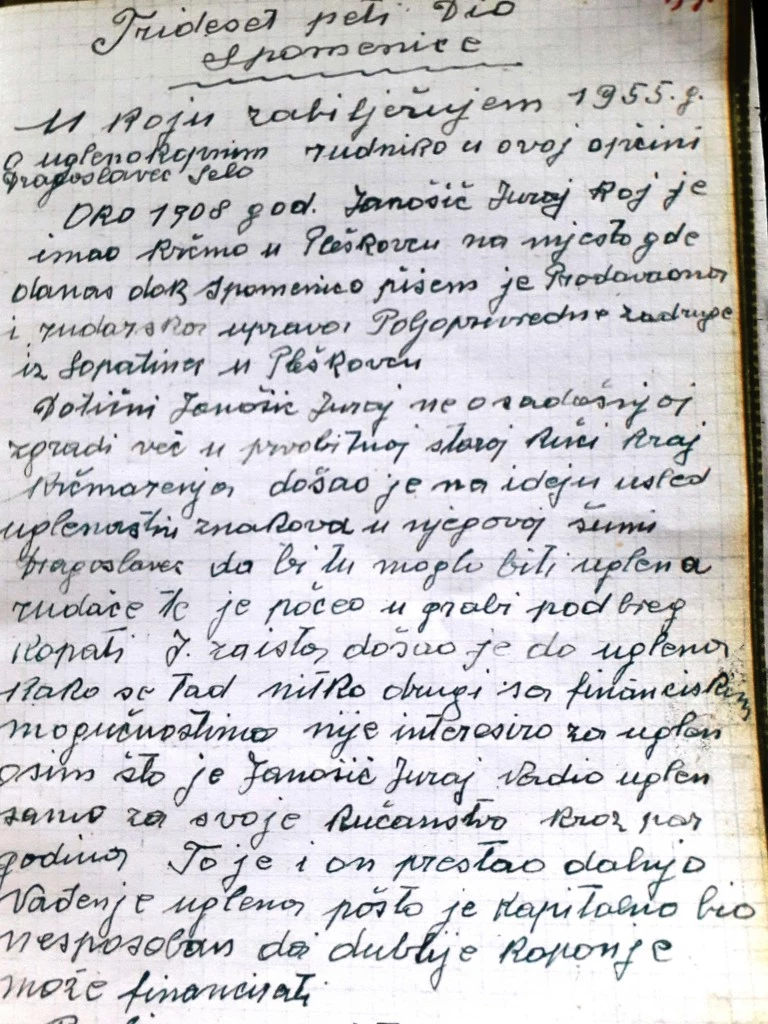 Trideset peti Dio
Spomenice
U koju zabilježujem 1955. g.
o uglenokopnim rudniko u ovoj općini
Dragoslavec Selo
Oko 1908 god. Janošić Juraj koj je
imao krčmo u Pleškovcu na mjesto gde
danas dok spomenico pišem je Prodavaona
i rudarska uprava Poljoprivredne zadruge
iz Lopatina u Pleškovcu
Dotični Janošić Juraj ne o sadašnjoj
zgradi več u prvobitnoj staroj kući kraj
krčmarenja došao je na ideju usled
uglenastni znakova u njegovoj šumi
Dragoslavec da bi tu moglo biti uglena
rudače te je počeo u grabi pod breg
kopati J. zaista došao je do uglena
Kako se tad nitko drugi sa financiskim
mogučnostima nije interesiro za uglen
osim što je Janošić Juraj vadio uglen
samo za svoje kučanstvo kroz par
godina To je i on prestao daljno
Vađenje uglena pošto je kapitalno bio
nesposoban da dublije kopanje
može financirati